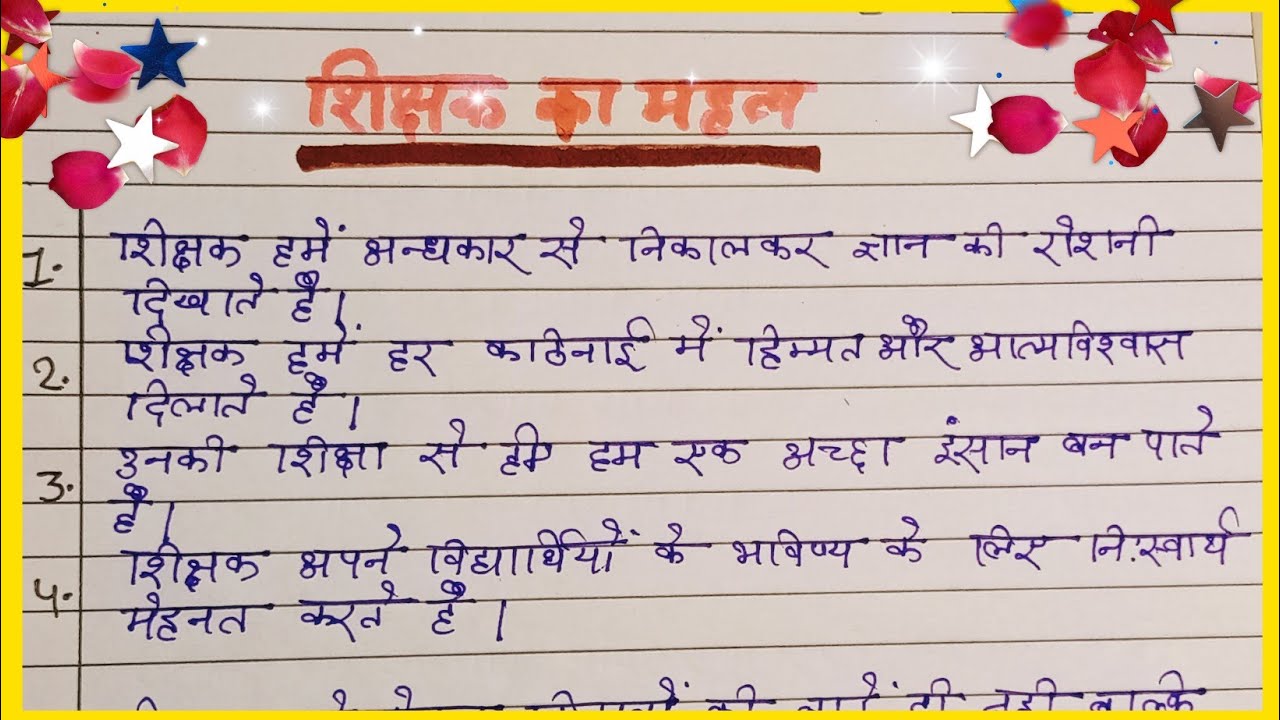 शिक्षक का महत्व
1. शिक्षक हमें अन्धकार से निकालकर ज्ञान की रोशनी
दिखाते है।
2. शिक्षक हमें हर कठिनाई में हिम्मत और आत्मविश्वास
दिलाते है।
3. उनकी शिक्षा से ही हम एक अच्छा इंसान बन पाते
है।
4. शिक्षक अपने विद्यार्थियों के भविष्य के लिए नि:स्वार्थ
मेहनत करते है।